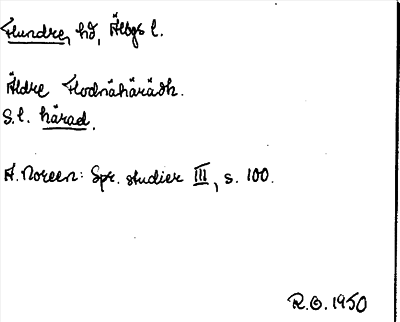 Flundre, hd, Älvsbgs l.
Äldre Flodnahäradh.
S.l. härad.
A. Noreen: Spr. studier III, s. 100.
R.O. 1950